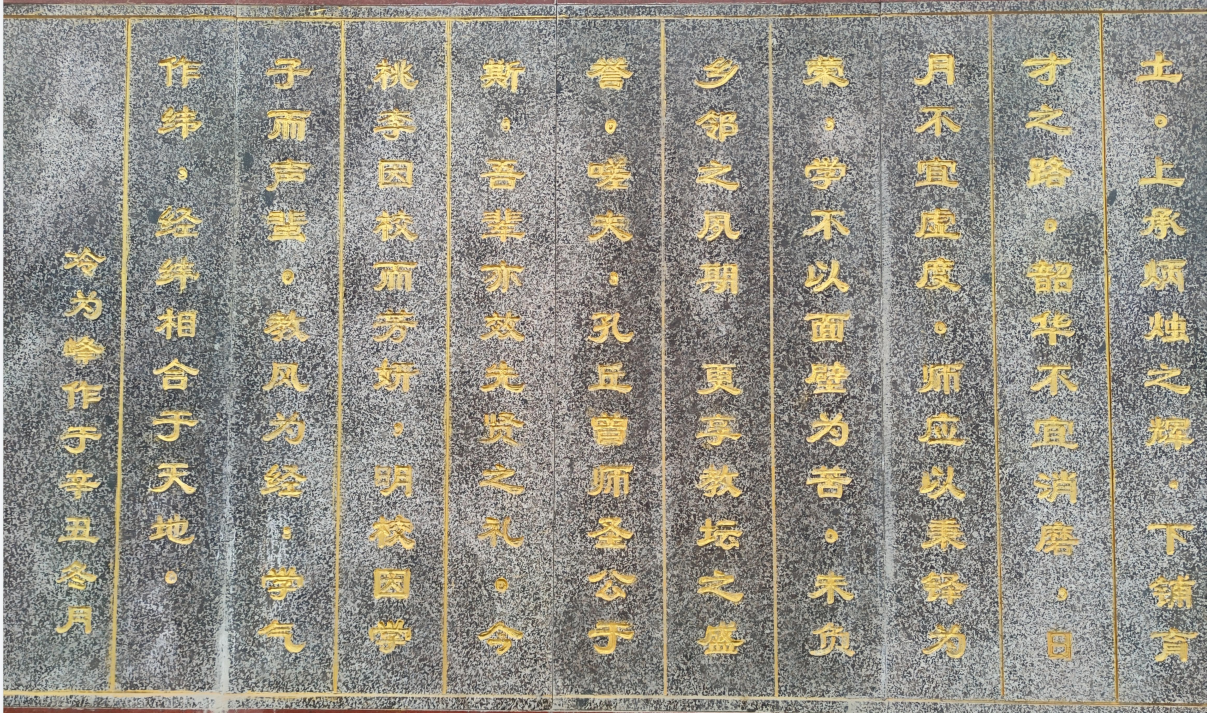 土。上承炳烛之辉，下铺育
才之路。韶华不宜消磨，日
月不宜虚度。师应以秉铎为
荣，学不以面壁为苦。未负
乡邻之夙期 更享教坛之盛
誉。嗟夫，孔丘曾师圣公于
斯，吾辈亦效先贤之礼。今
桃李因校而芳妍，明校因学
子而声蜚。教风为经，学气
作纬，经纬相合于天地。
冷为峰作于辛丑冬月